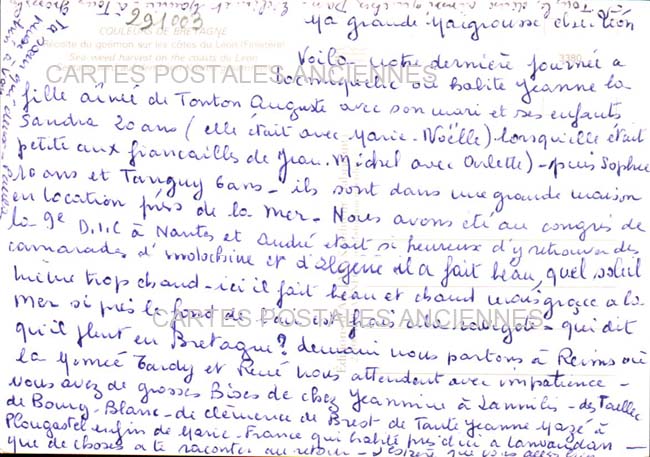 291003
COULEURS DE BRETAGNE
Récolte du goemon sur les côtes du Léon (Finistère)
Sea-weed harvest on the coasts of Léon
3380
CARTES POSTALES ANCIENNES
Ma grande
Voila notre dernière journée a
Locmiquelic où habite Jeanne la
fille aînée de Tonton Auguste avec son mari et ses enfants
Sandra 20 ans (elle était avec Marie-Noëlle) lorsqu'elle était
petite aux fiancailles de Jean. Michel avec Arlette) - puis Sophie
10 ans et Tanguy 6 ans - ils sont dans une grande maison
en location près de la mer. Nous avons été au congrès de
la 9e D.I.C à Nantes et André était si heureux d'y retrouver des
camarades d'Indochine et d'Algérie il a fait beau, quel soleil
même trop chaud - ici il fait beau et chaud mais grâce a la
mer si près le fond de l'air est frais - qui dit
CARTES POSTALES ANCIENNES
qu'il pleut en Bretagne? demain nous partons à Reims où
la Tardy et René nous attendent avec impatience -
vous avez de grosses Bises de chez Jeannine à Lannilis - des
de Bourg-Blanc - de Clémence de Brest - de Tante Jeanne Mazé à
Plougastel enfin de Marie-France qui habite près d'ici a Lanvaudan -
que de choses a te raconter au retour - J'espère que vous allez bien